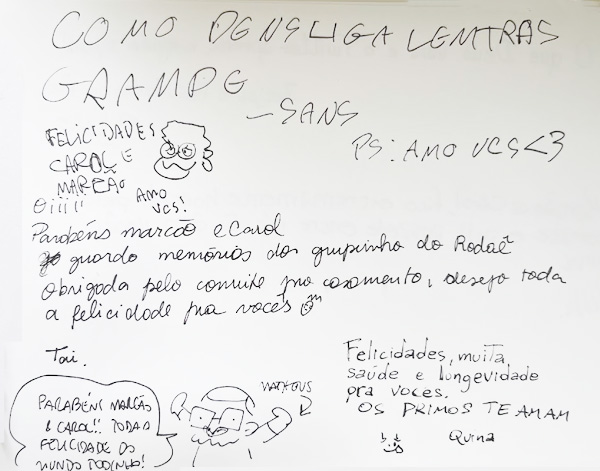 COMO DENSLIGA LEMTRAS
GRAMPE
- SANS
PS: AMO VCS <3
FELICIDADES
CAROL E
MARCÃO
AMO
VCS!
Oiiii!!
Parabéns marcão e Carol
guardo memórias do grupinho do Rodaê
obrigada pelo convite pro casamento, desejo toda
a felicidade pra vocês
Tai.
PARABÉNS MARCÃO
& CAROL!! TODAS
FELICIDADE DO
MUNDO TODINHO!
MATHEUS
Felicidades, muita
saúde e longevidade
pra voces.
OS PRIMOS TE AMAM
Quina